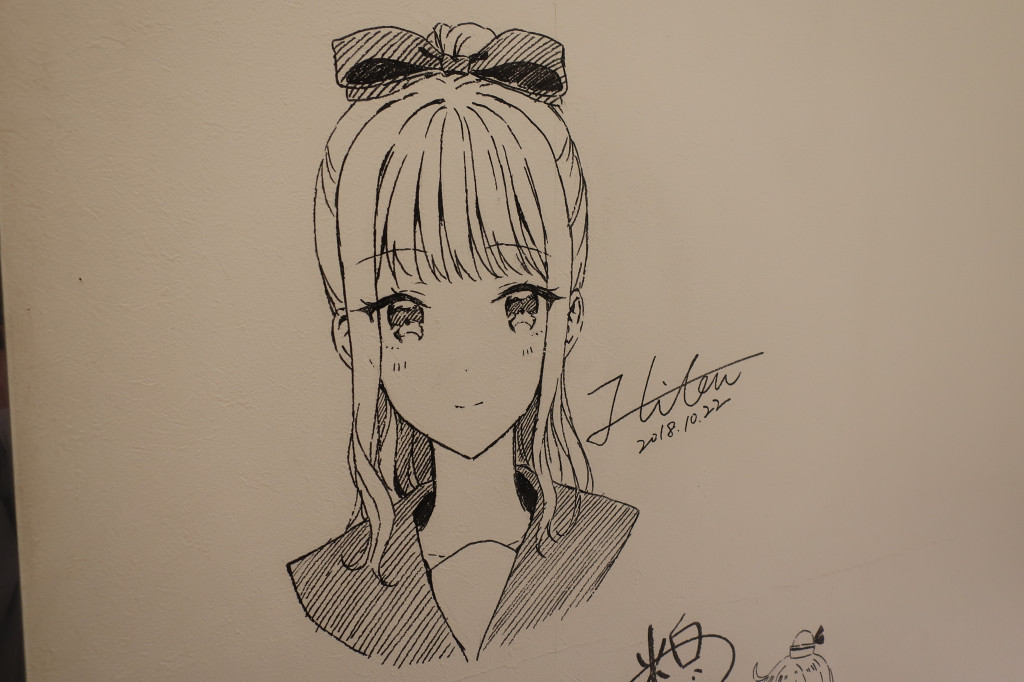 Hiten
2018.10.22